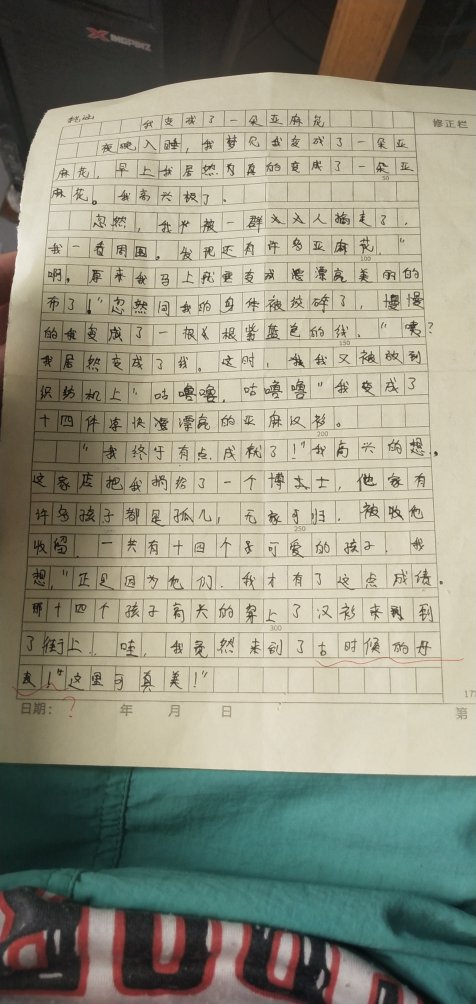 我变成了一朵亚麻花
修正栏
夜晚入睡，我梦见我变成了一朵亚
麻花，早上我居然为真的变成了一朵亚
麻花。我高兴极了。
50
忽然，我被一群人摘走了，
我一看周围。发现还有许多亚麻花，"
100
啊，原来我马上就要变成漂亮美丽的
布了！"忽然间我的身体被绞碎了，慢慢
的我变成了一根根紫蓝色的线。"咦？
150
我居然变成了线。这时，我又被放到
织纺机上"咕噜噜，咕噜噜"我变成了
十四件漂亮的亚麻汉衫。
200
"我终于有点成就了！"我高兴的想。
这家店把我捐给了一个博士，他家有
许多孩子都是孤儿，无家可归，被他
250
收留，一共有十四个可爱的孩子，我
想，"正是因为他们，我才有了这点成绩。
那十四个孩子高兴的穿上了汉衫来到
300
了街上，哇，我竟然来到了古时候的丹
麦！"这里可真美！"
日期： ？ 年 月 日
第